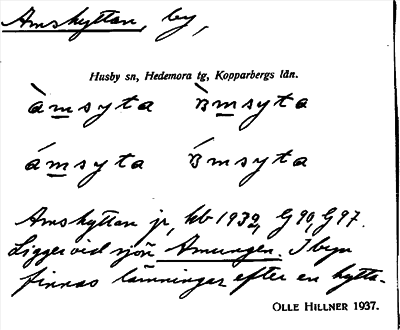 Amshyttan, by,
Husby sn, Hedemora tg, Kopparbergs län.
àmsyta òmsyta
ámsyta ómsyta
Amshyttan jr, kb 1932, G90, G97.
Ligger vid sjön Amungen. I byn
finnas lämningar efter en hytta.
OLLE HILLNER 1937.